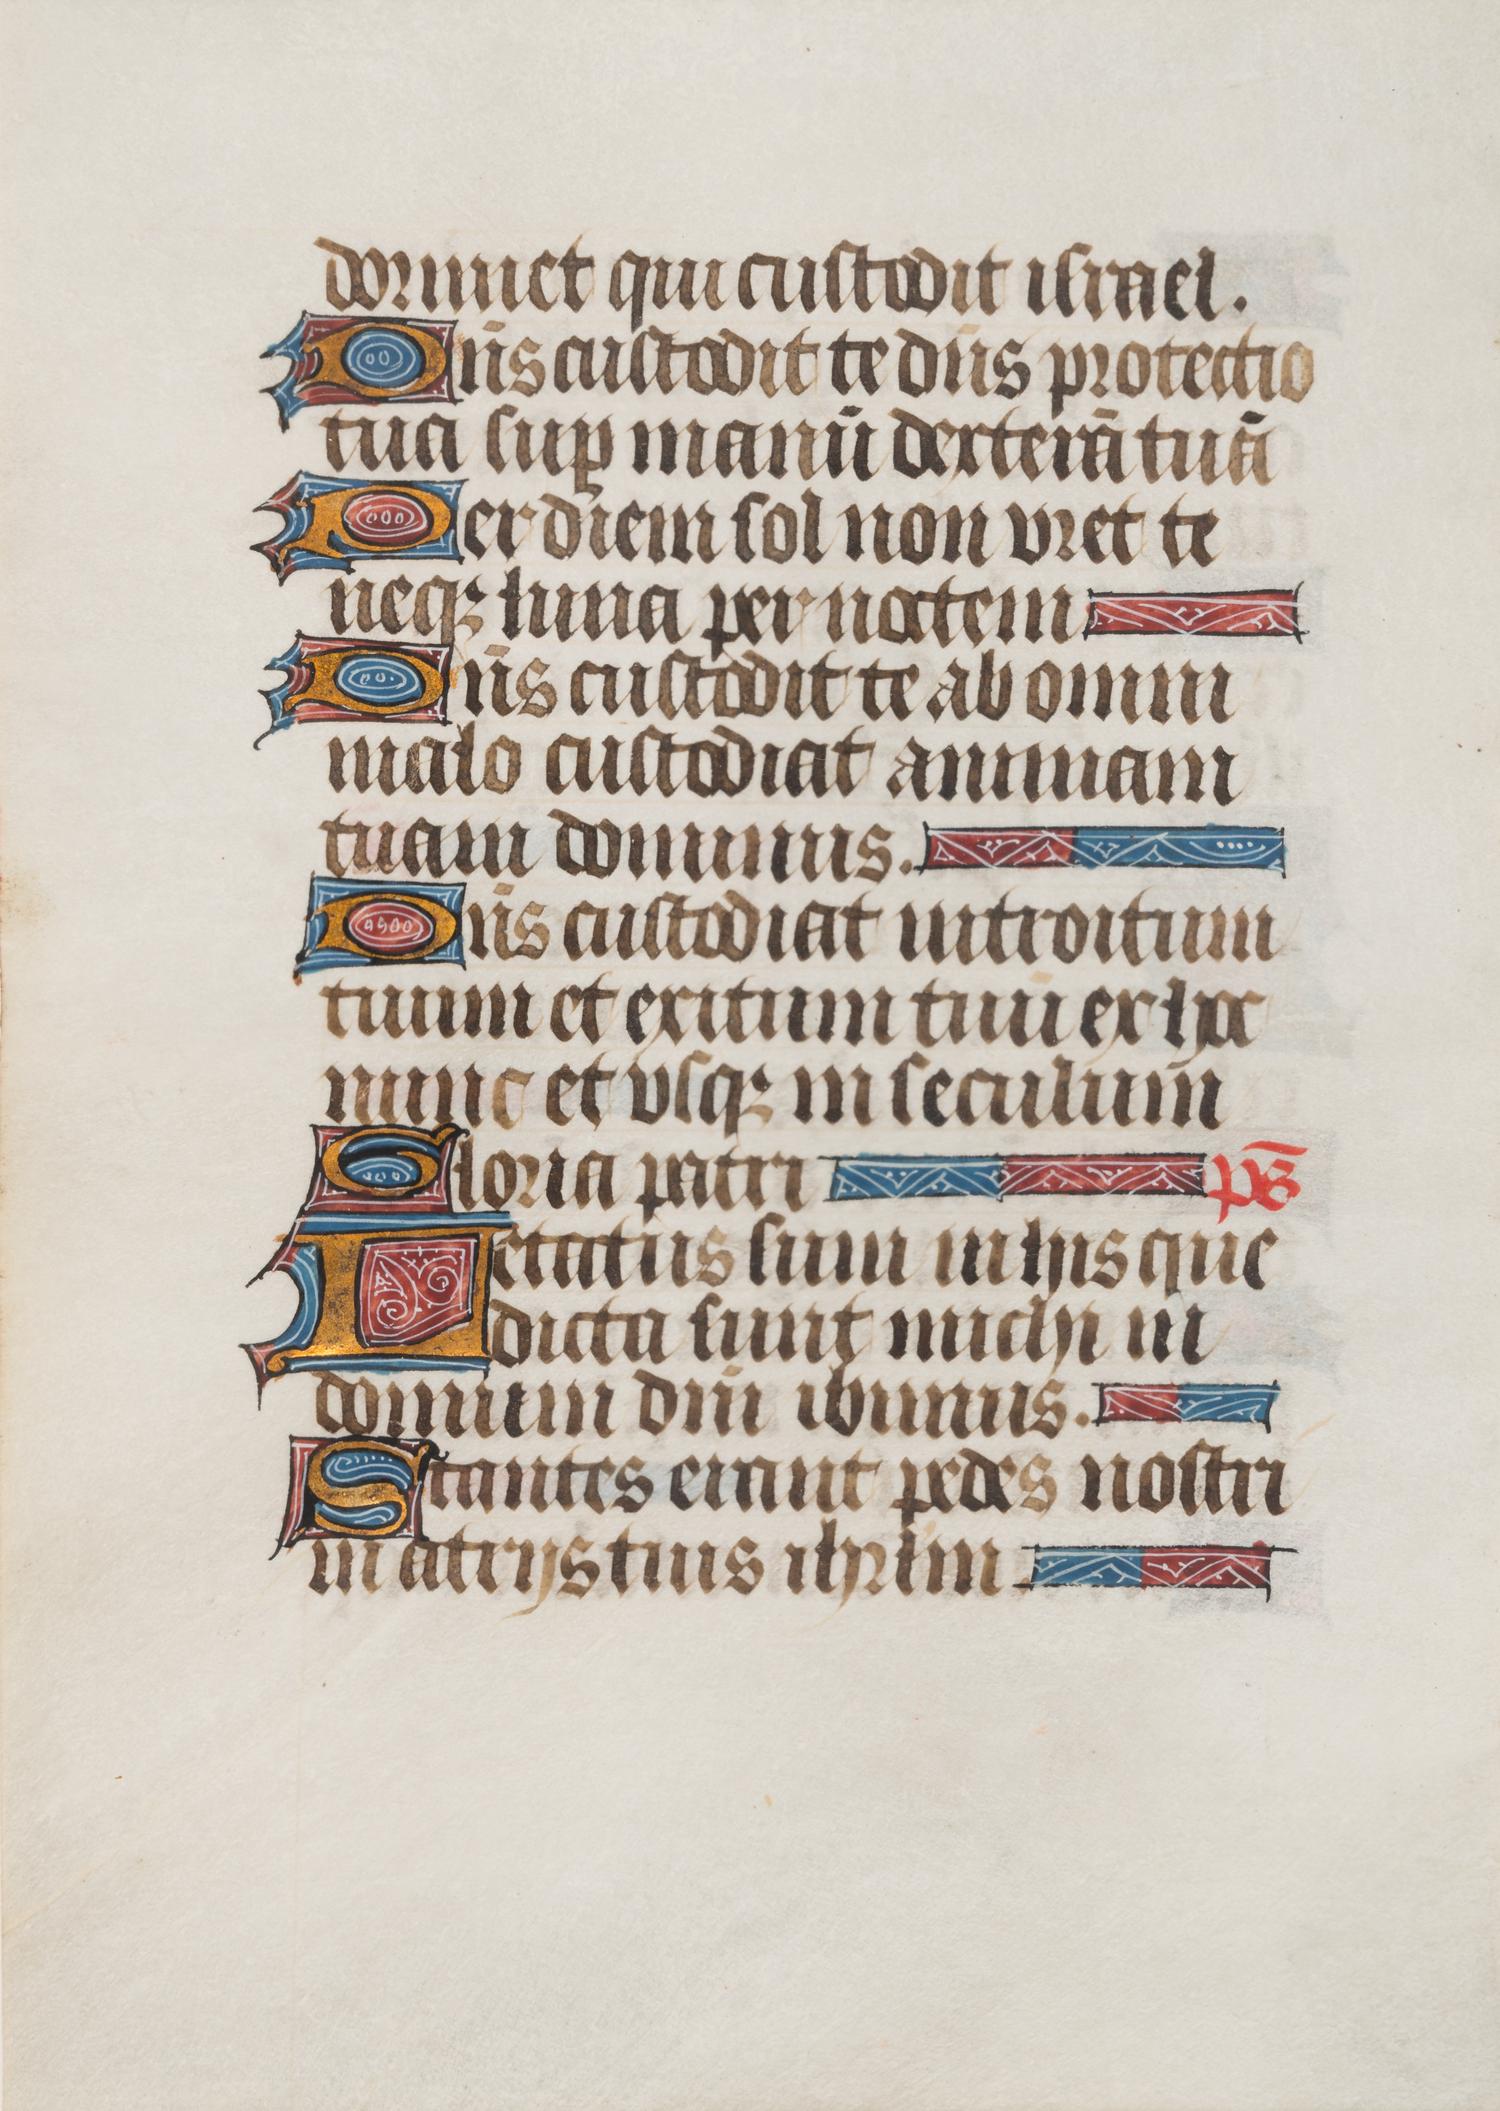 dormiet qui custodit israel.
Dn̄s custodit te dn̄s protectio
tua suꝑ manū dexterā tuā
Per diem sol non vret te
neqꝫ luna per noctem
Dn̄s custodit te ab omni
malo custodiat animam
tuam dominus.
Dn̄s custodiat introitum
tuum et exitum tuū ex hoc
nunc et vsqꝫ in seculum
Gloria patri p̄s
Letatus sum in his que
dicta sunt michi in
domum dn̄i ibimus.
Stantes erant pedes nostri
in atrijs tuis ihrl̄m